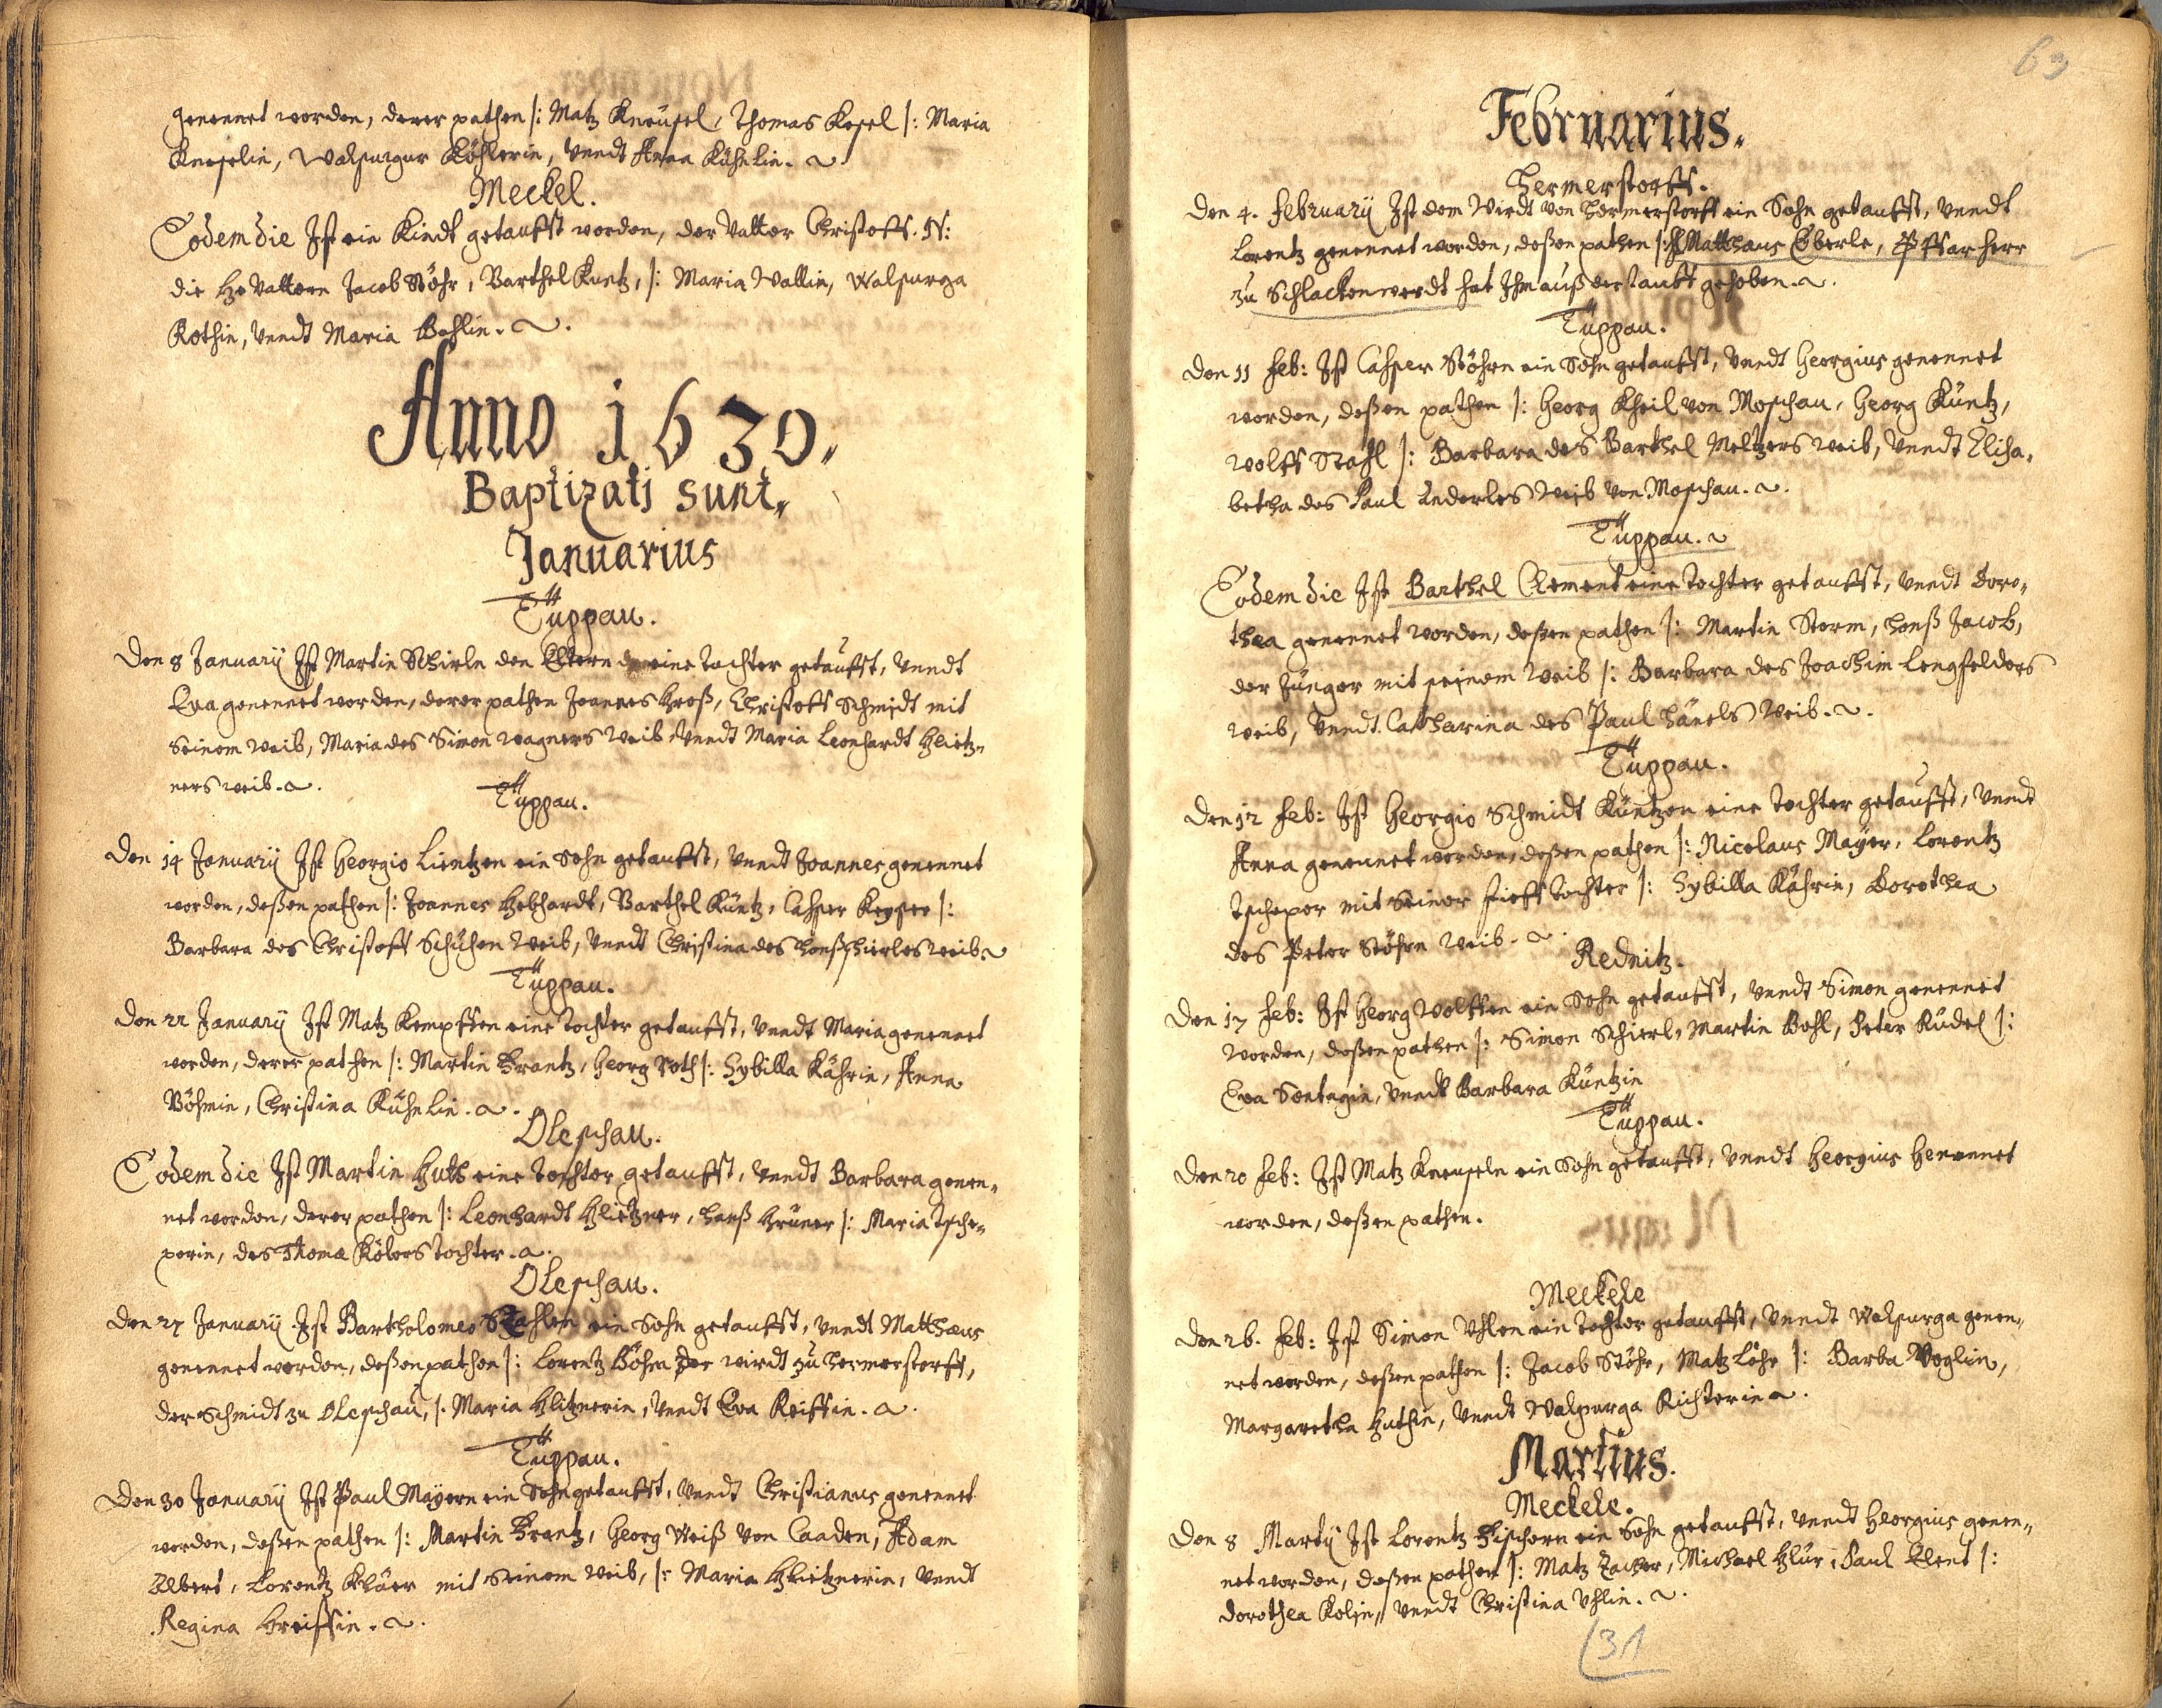 genennet worden, derer pathen |: Matz Kneüsel, Thomas Kosel |: Maria
Kneselin, Walpurgur Köhlerin, Vnndt Anna Kühnlin.
Meckel.
Eodem die Ist ein Kindt getaufft worden, der Vatter Christoff. N:
die Gevattern Jacob Stöhr, Barthel Kuntz, |: Maria Wallin, Walpurga
Rothin, Vnndt Maria Bohlin.
Anno 1630.
Baptizati sunt.
Januarius
Tüppau.
Den 8 Januarij Ist Martin Schirln den Eltern eine tochter getaufft, Vnndt
Eva genennet worden, derer pathen Joannes Groß, Christoff Schmidt mit
seinem weib, Maria des Simon wagners weib Vnndt Maria Leonhardt Glietz-
ners weib.
Tüppau.
Den 14 Januarij Ist Georgio Lientzen ein Sohn getaufft, Vnndt Joannes genennet
worden, deßen pathen |: Joannes Gebhardt, Barthel Küntz, Casper Keyser |:
Barbara des Christoff Schuhen weib, Vnndt Christina des Honß schierles weib
Tüppau.
Den 22 Januarij Ist Matz Kempffen eine tochter getaufft, Vnndt Maria genennet
worden, derer pathen |: Martin Frantz, Georg Roth |: Sybilla Kährin, Anna
Böhmin, Christina Kühnlin.
Oleschau.
Eodem die Ist Martin Huth eine tochter getaufft, Vnndt Barbara genen-
net worden, derer pathen |: Leonhardt Glietzner, Hanß Grüner |: Maria tsche-
perin, des Thomæ Kölers tochter.
Oleschau.
Den 27 Januarij Ist Bartholomeo Stahlen ein Sohn getaufft, Vnndt Matthæus
genennet worden, deßen pathen |: Lorentz Böhm der wirdt zu Hermerstorff,
der Schmidt zu Oleschau, |: Maria Glitznerin, Vnndt Eva Reiffin.
Tüppau.
Den 30 Januarij Ist Paul Mayern ein Sohn getaufft, Vnndt Christianus genennet
worden, deßen pathen |: Martin Frantz, Georg Weiß von Caaden, Adam
Albert, Lorentz Klüer mit seinem weib, |: Maria Glietznerin, Vnndt
Regina Greiffin.
63
Februarius.
Hermerstorff.
Den 4. Februarij Ist dem Wirdt von Hermerstorff ein Sohn getaufft, Vnndt
Lorentz genennet worden, deßen pathen |: H Matthæus Eberle, Pffarherr
zu Schlackenwerdt hat Ihm auß der tauff gehoben.
Tüppau.
Den 11 Feb: Ist Casper Stöhrn ein Sohn getaufft, Vnndt Georgius genennet
worden, deßen pathen |: Georg Kheil von Moschau, Georg Küntz,
Wolff Stahl |: Barbara des Barthel Meltzers weib, Vnndt Elisa-
betha des Paul Enderles weib von Moschau.
Tüppau.
Eodem die Ist Barthel Clement eine tochter getaufft, Vnndt Doro-
thea genennet worden, deßen pathen |: Martin Storm, Honß Jacob,
der Jünger mit seinem weib |: Barbara des Joachim Lengfelders
weib, Vnndt Catharina des Paul Hänels weib.
Tüppau.
Den 12 Feb: Ist Georgio Schmidt Küntzen eine tochter getaufft, Vnndt
Anna genennet worden, deßen pathen |: Nicolaus Mayer, Lorentz
tscheper mit seiner stieff tochter |: Sybilla Kährin, Dorothea
des Peter Stöhrn weib.
Rednitz.
Den 17 Feb: Ist Georg Wolffen ein Sohn getaufft, Vnndt Simon genennet
worden, deßen pathen |: Simon Schierl, Martin Bohl, Peter Rüdel |:
Eva Sontagin, Vnndt Barbara Küntzin
Tüppau.
Den 20 Feb: Ist Matz Kneuseln ein Sohn getaufft, Vnndt Georgius genennet
worden, deßen pathen.
Meckele
Den 26. Feb: Ist Simon Vhlen ein tochter getaufft, Vnndt Walpurga genen-
net worden, deßen pathen |: Jacob Stöhr, Matz Löhr |: Barba Voglin,
Margaretha Huthin, Vnndt Walpurga Richterin.
Martius.
Meckele.
Den 8 Martij Ist Lorentz Fischern ein Sohn getaufft, Vnndt Georgius genen-
net worden, deßen pathen |: Matz Zacher, Michael Glür, Paul Klent |:
Dorothea Kolin, Vnndt Christina Vhlin.
(31